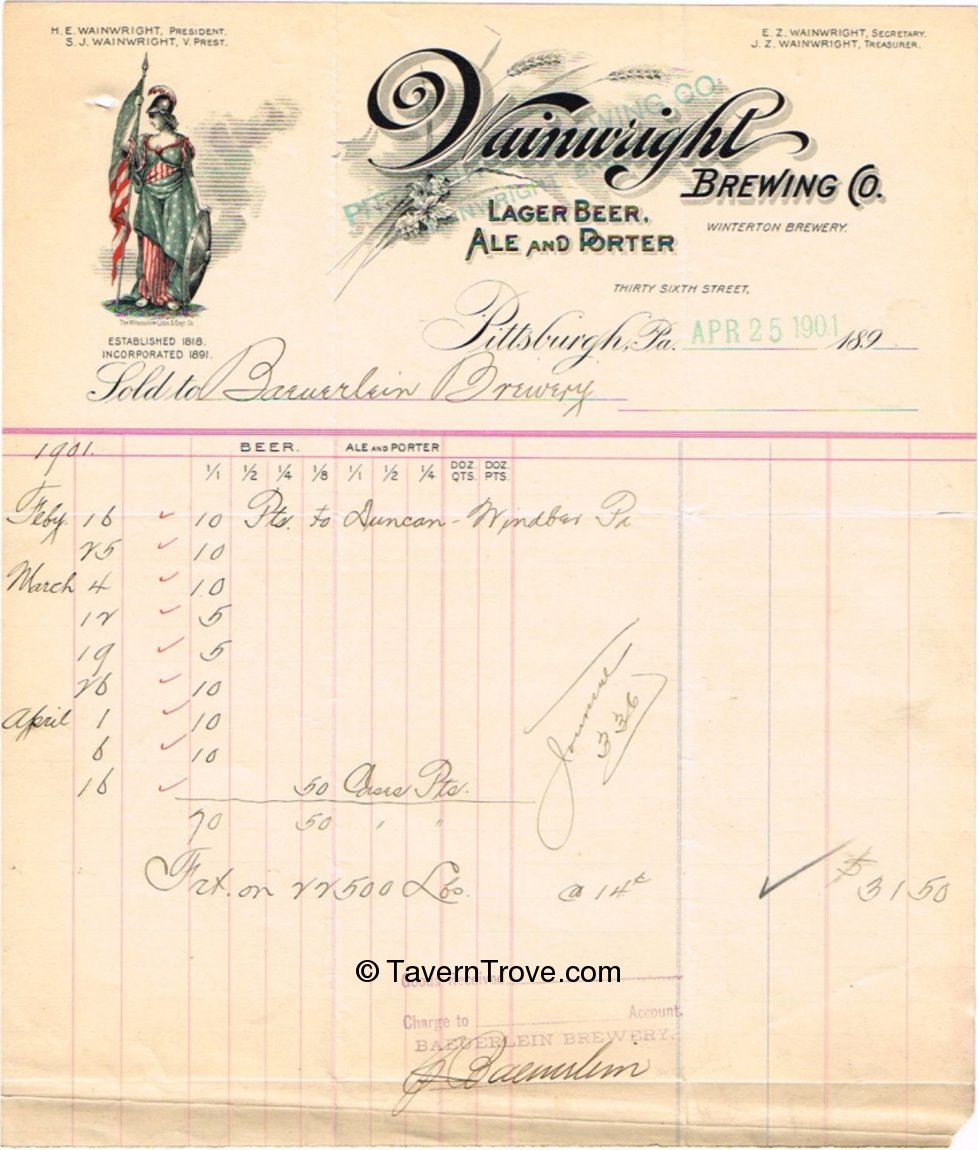 H. E. WAINWRIGHT, PRESIDENT.
S. J. WAINWRIGHT, V. PREST.
E. Z. WAINWRIGHT, SECRETARY.
J. Z. WAINWRIGHT, TREASURER.
Wainwright
BREWING CO.
LAGER BEER,
ALE AND PORTER
WINTERTON BREWERY.
THIRTY SIXTH STREET,
ESTABLISHED 1818.
INCORPORATED 1891.
Pittsburgh, Pa. APR 25 1901 189
Sold to Baeuerlein Brewery
1901. BEER. ALE AND PORTER
1/1 1/2 1/4 1/8 1/1 1/2 1/4 DOZ. QTS. DOZ. PTS.
Feby 16 ✓ 10 Pts. to Duncan - Windber Pa
25 ✓ 10
March 4 ✓ 10
12 ✓ 5
19 ✓ 5
26 ✓ 10
April 1 ✓ 10
6 ✓ 10
16 ✓ 50 Cases Pts.
70 50 " "
Journal
336
Frt. on 22500 Lbs. @ 14¢ ✓ $ 31 50
© TavernTrove.com
Goods Received
Charge to Account.
BAEUERLEIN BREWERY.
Baeuerlein